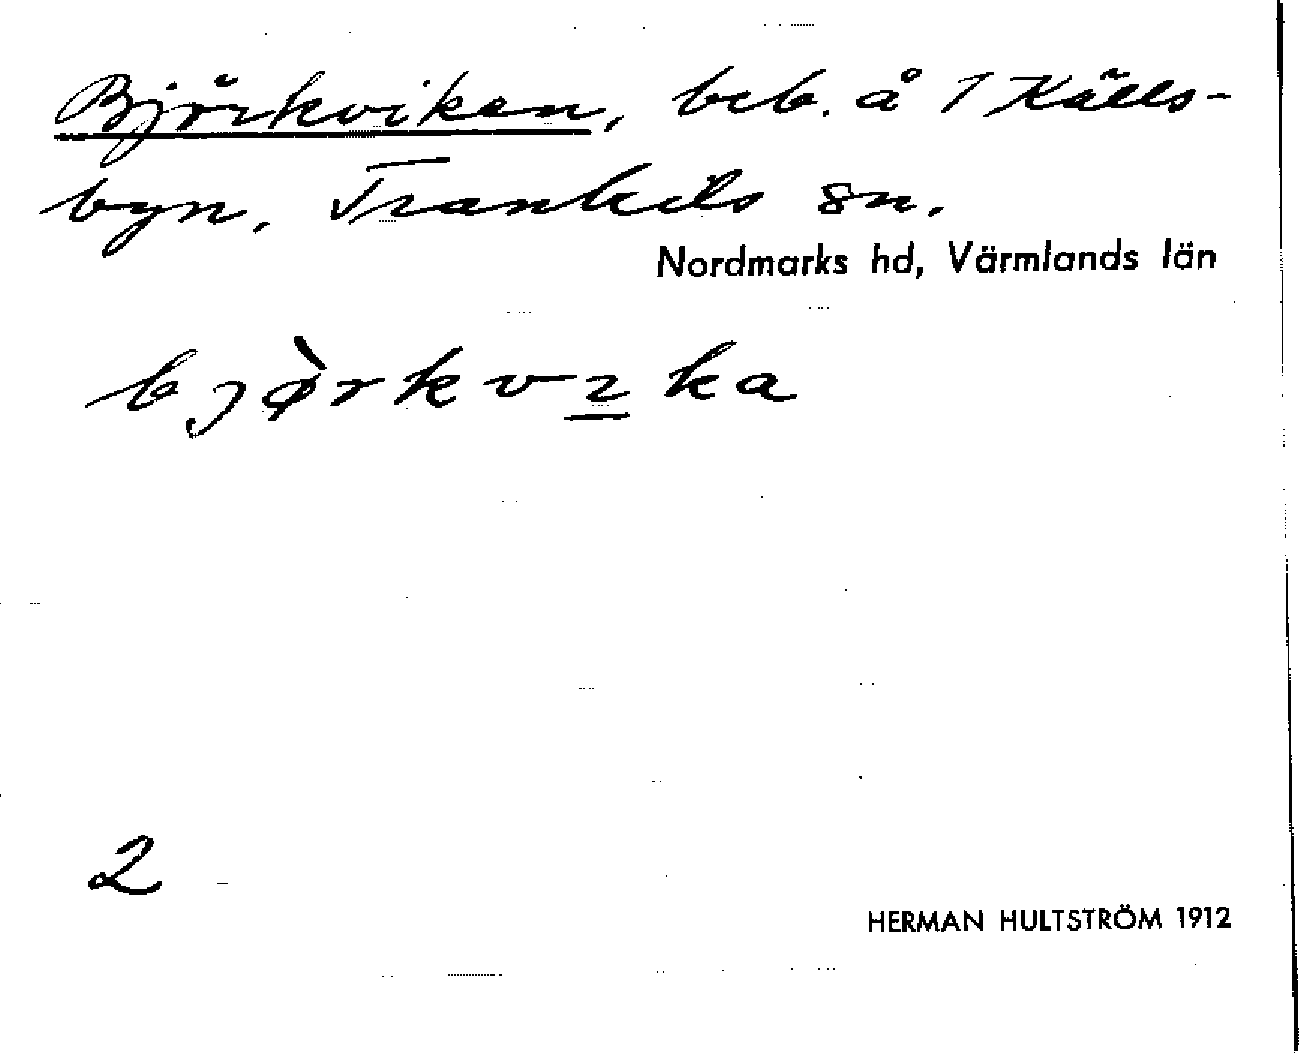 Björkviken, beb. å 1 Källs-
byn, Trankils sn.
Nordmarks hd, Värmlands län
bjø̀rkvɪ̲ka
2
HERMAN HULTSTRÖM 1912